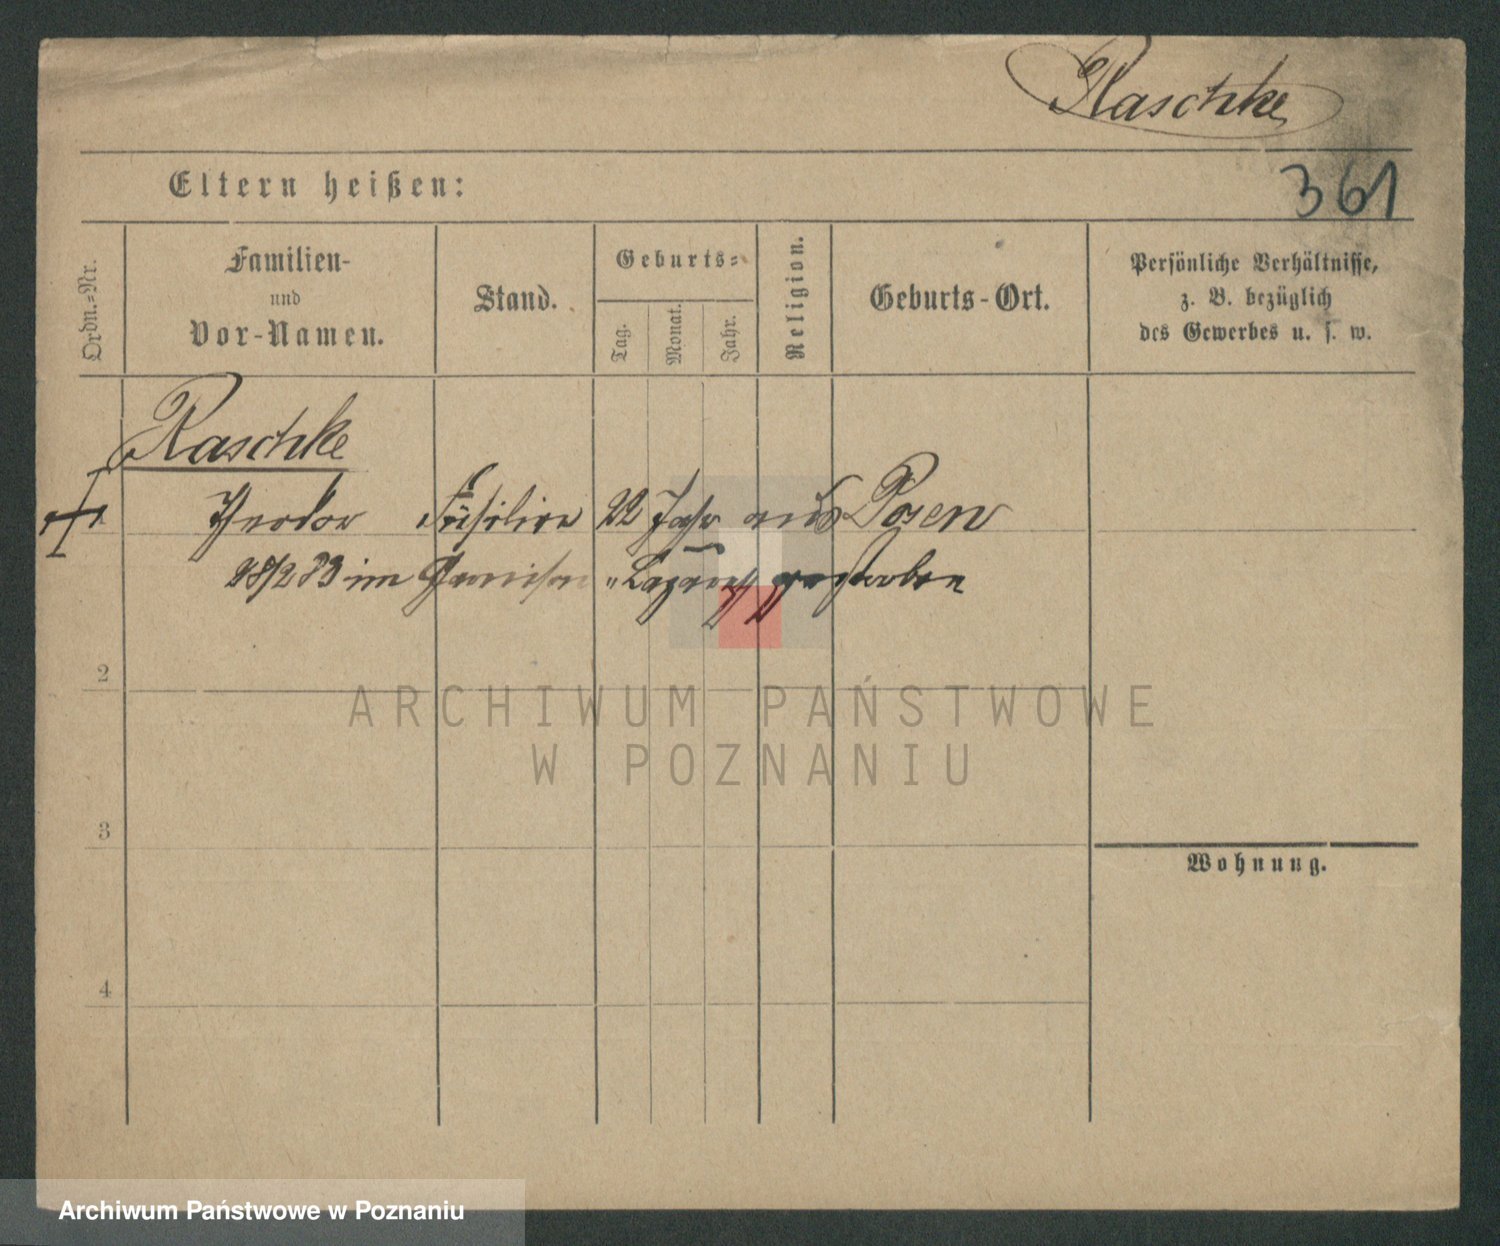 Raschke
361
Eltern heißen:
Ordn.-Nr.
Familien-
und
Vor-Namen.
Stand.
Geburts-
Tag.
Monat.
Jahr.
Religion.
Geburts-Ort.
Persönliche Verhältnisse,
z. B. bezüglich
des Gewerbes u. s. w.
Raschke
Theodor Füsilier 22 Jahr aus Posen
28/2 83 im Garnison-Lazareth gestorben
2
3
4
Wohnung.
ARCHIWUM PAŃSTWOWE
W POZNANIU
Archiwum Państwowe w Poznaniu